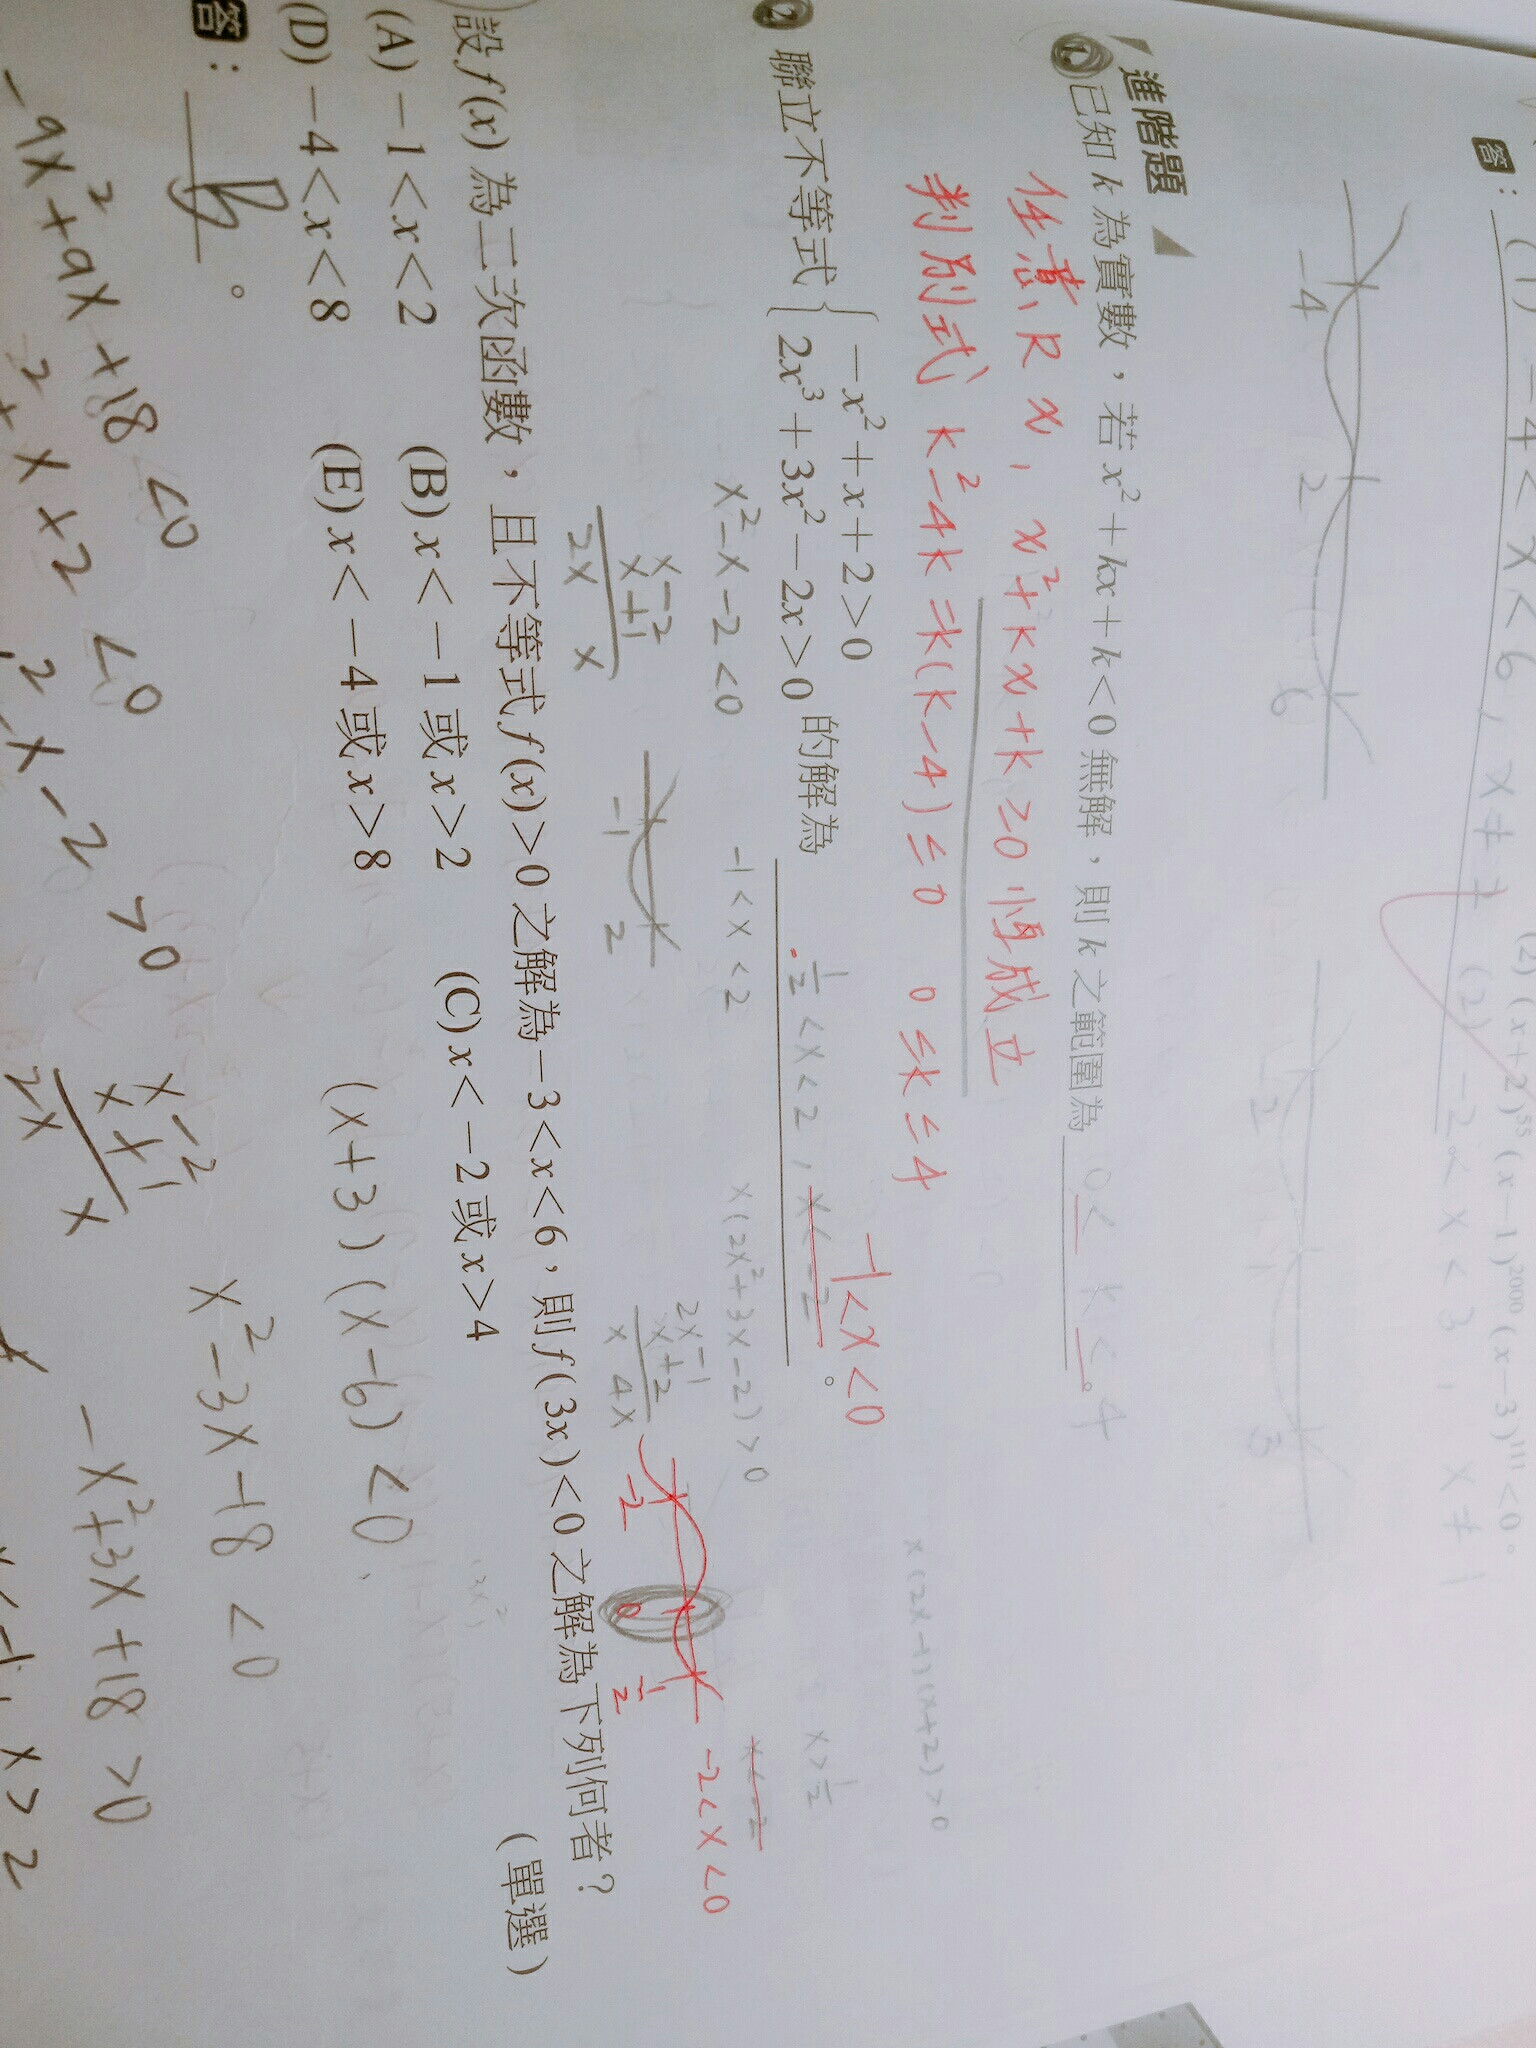 答：(1) -4<x<6，x≠2 (2) -2<x<3，x≠1
(2) (x+2)⁵⁵(x-1)²⁰⁰⁰(x-3)¹¹¹<0。
-4 2 6
-2 1 3
進階題
1. 已知 k 為實數，若 x²+kx+k<0 無解，則 k 之範圍為 0≤k≤4。
任意 R x，x²+kx+k≥0 恆成立
判別式 k²-4k=k(k-4)≤0 0≤k≤4
2 聯立不等式 { -x²+x+2>0
2x³+3x²-2x>0 的解為 ½<x<2，x<-2。
-1<x<0
x²-x-2<0 -1<x<2 x(2x²+3x-2)>0
x(2x-1)(x+2)>0
x>½
x<-2
x-2
x+1
2x x
-1 2
2x-1
x+2
x 4x
-2 0 ½ -2<x<0
設 f(x) 為二次函數，且不等式 f(x)>0 之解為 -3<x<6，則 f(3x)<0 之解為下列何者？
(單選)
(A) -1<x<2 (B) x<-1 或 x>2 (C) x<-2 或 x>4
(D) -4<x<8 (E) x<-4 或 x>8
答：B。
(x+3)(x-6)<0
x²-3x-18<0
-x²+3x+18>0
-9x²+9x+18<0
-x²+x+2<0
x²-x-2>0
x-2
x+1
2x x
x<-1，x>2